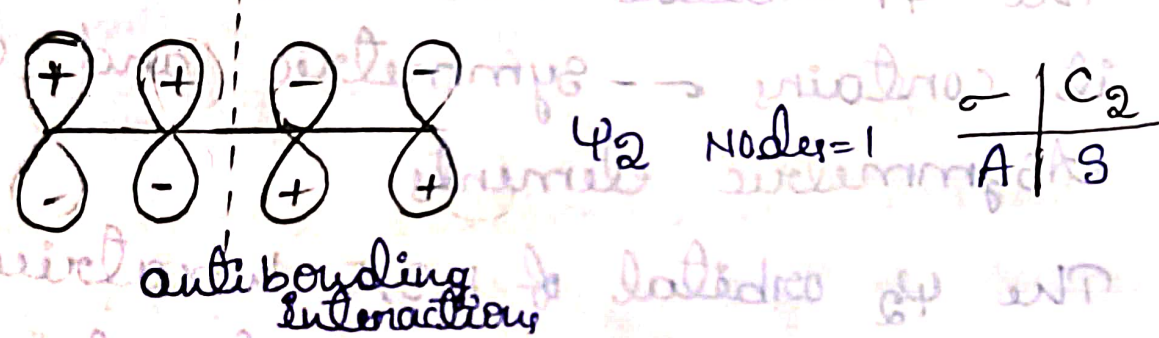 + + - -
Ψ2 Nodes=1 σ | C2
- - + + A | S
antibonding
interactions